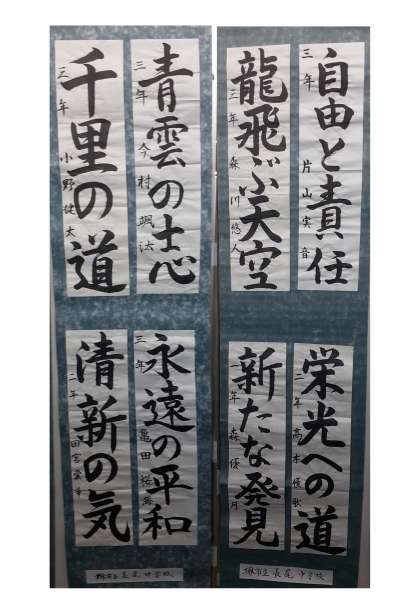 自由と責任
三年 片山実音
龍飛ぶ天空
三年 森川悠人
青雲の志
三年 今村颯汰
千里の道
三年 小野健太
栄光への道
二年 高木優歌
新たな発見
一年 森優月
永遠の平和
三年 亀田
清新の気
二年 田宮
堺市立長尾中学校
堺市立長尾中学校